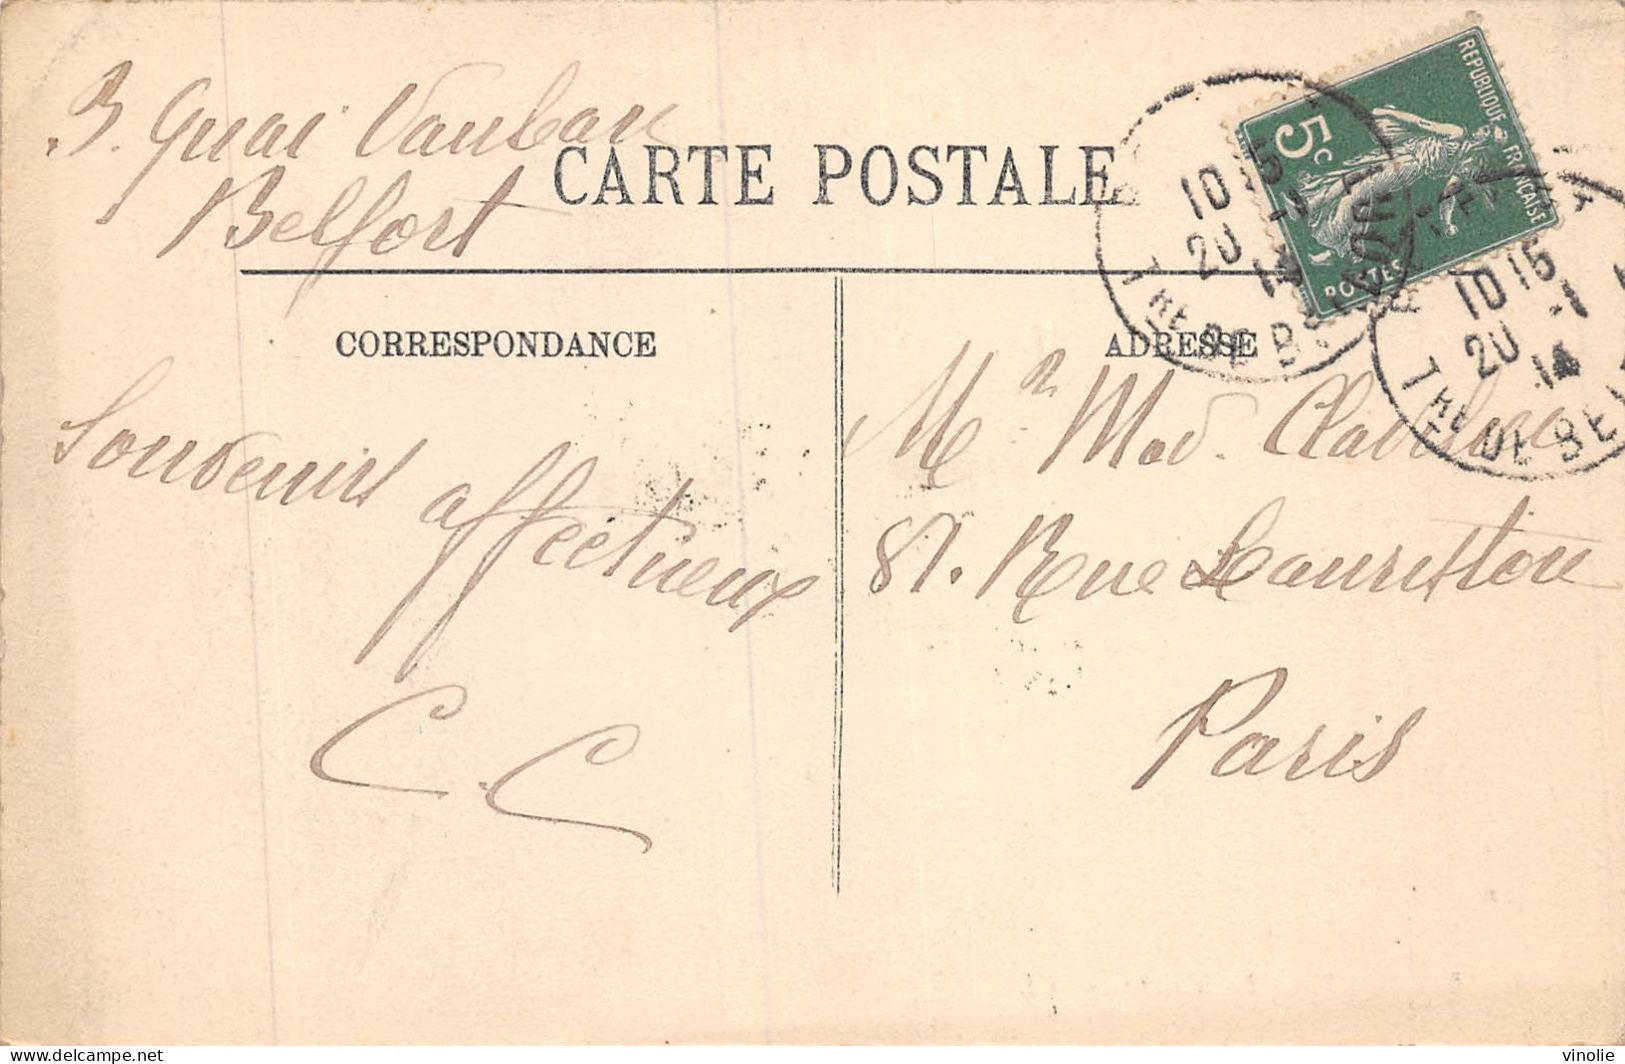 3. Quai Vauban
Belfort
CARTE POSTALE
REPUBLIQUE FRANÇAISE
5c
POSTES
10 15
20 -1
14
TRE DE BE
10 15
20 -1
14
TRE DE BEL
CORRESPONDANCE
ADRESSE
Souvenirs
affectueux
C. C
Mr Mod.
81. Rue Lauriston
Paris
delcampe.net
vinolie